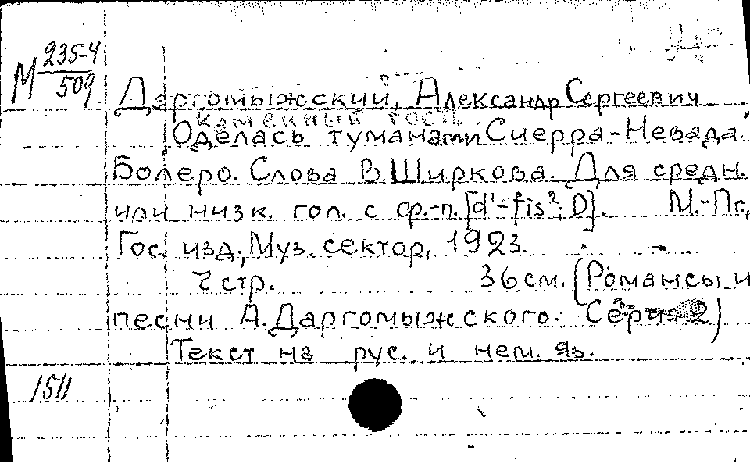 М 235-4
509
Даргомыжский, Александр Сергеевич
каменный гость
Оделась туманами Сиерра-Невада.
Болеро. Слова В. Ширкова. Для средн.
или низк. гол. с ф.-п. [d¹-fis²; D]. М.-Пг,
Гос. изд., Муз. сектор, 1923.
7 стр. 36 см. (Романсы и
песни А. Даргомыжского. Серия 2)
Текст на рус. и нем. яз.
1511